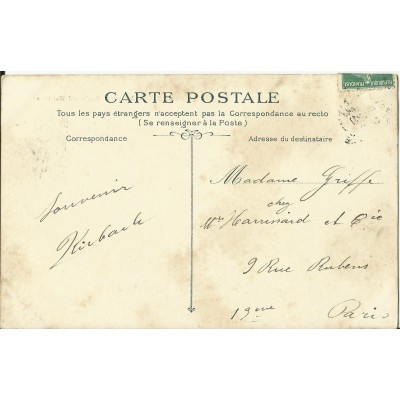 CARTE POSTALE
Tous les pays étrangers n'acceptent pas la Correspondance au recto
(Se renseigner à la Poste)
Correspondance
Adresse du destinataire
Souvenir
Madame Griffe
chez
et Cie
9 Rue Rubens
19me
Paris